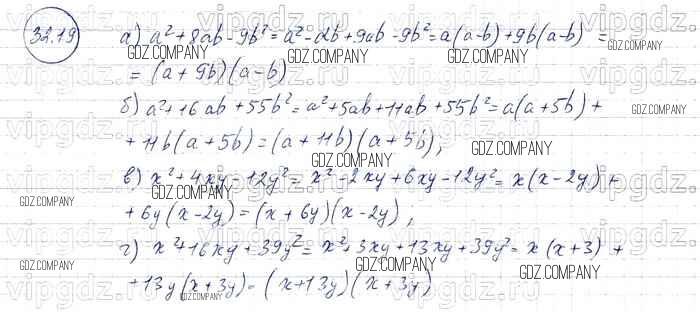 32.19
а) a² + 8ab - 9b² = a² - ab + 9ab - 9b² = a(a-b) + 9b(a-b) =
= (a + 9b)(a-b)
б) a² + 16ab + 55b² = a² + 5ab + 11ab + 55b² = a(a+5b) +
+ 11b(a+5b) = (a+11b)(a+5b);
в) x² + 4xy - 12y² = x² - 2xy + 6xy - 12y² = x(x-2y) +
+ 6y(x-2y) = (x+6y)(x-2y);
г) x² + 16xy + 39y² = x² + 3xy + 13xy + 39y² = x(x+3) +
+ 13y(x+3y) = (x+13y)(x+3y)
vipgdz.ru
GDZ.COMPANY